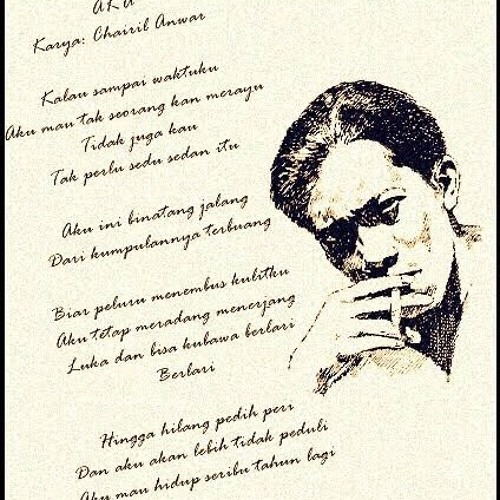 AKU
Karya: Chairil Anwar
Kalau sampai waktuku
Aku mau tak seorang kan merayu
Tidak juga kau
Tak perlu sedu sedan itu
Aku ini binatang jalang
Dari kumpulannya terbuang
Biar peluru menembus kulitku
Aku tetap meradang menerjang
Luka dan bisa kubawa berlari
Berlari
Hingga hilang pedih peri
Dan aku akan lebih tidak peduli
Aku mau hidup seribu tahun lagi